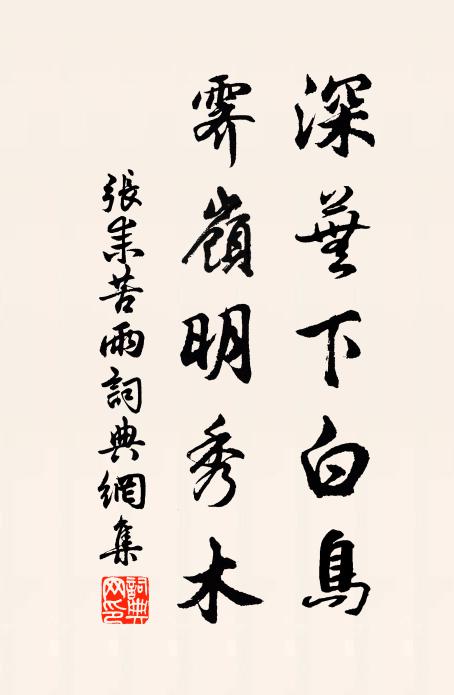 深蕪下白鳥
霽嶺明秀木
張耒苦雨詞典網集
詞典網印